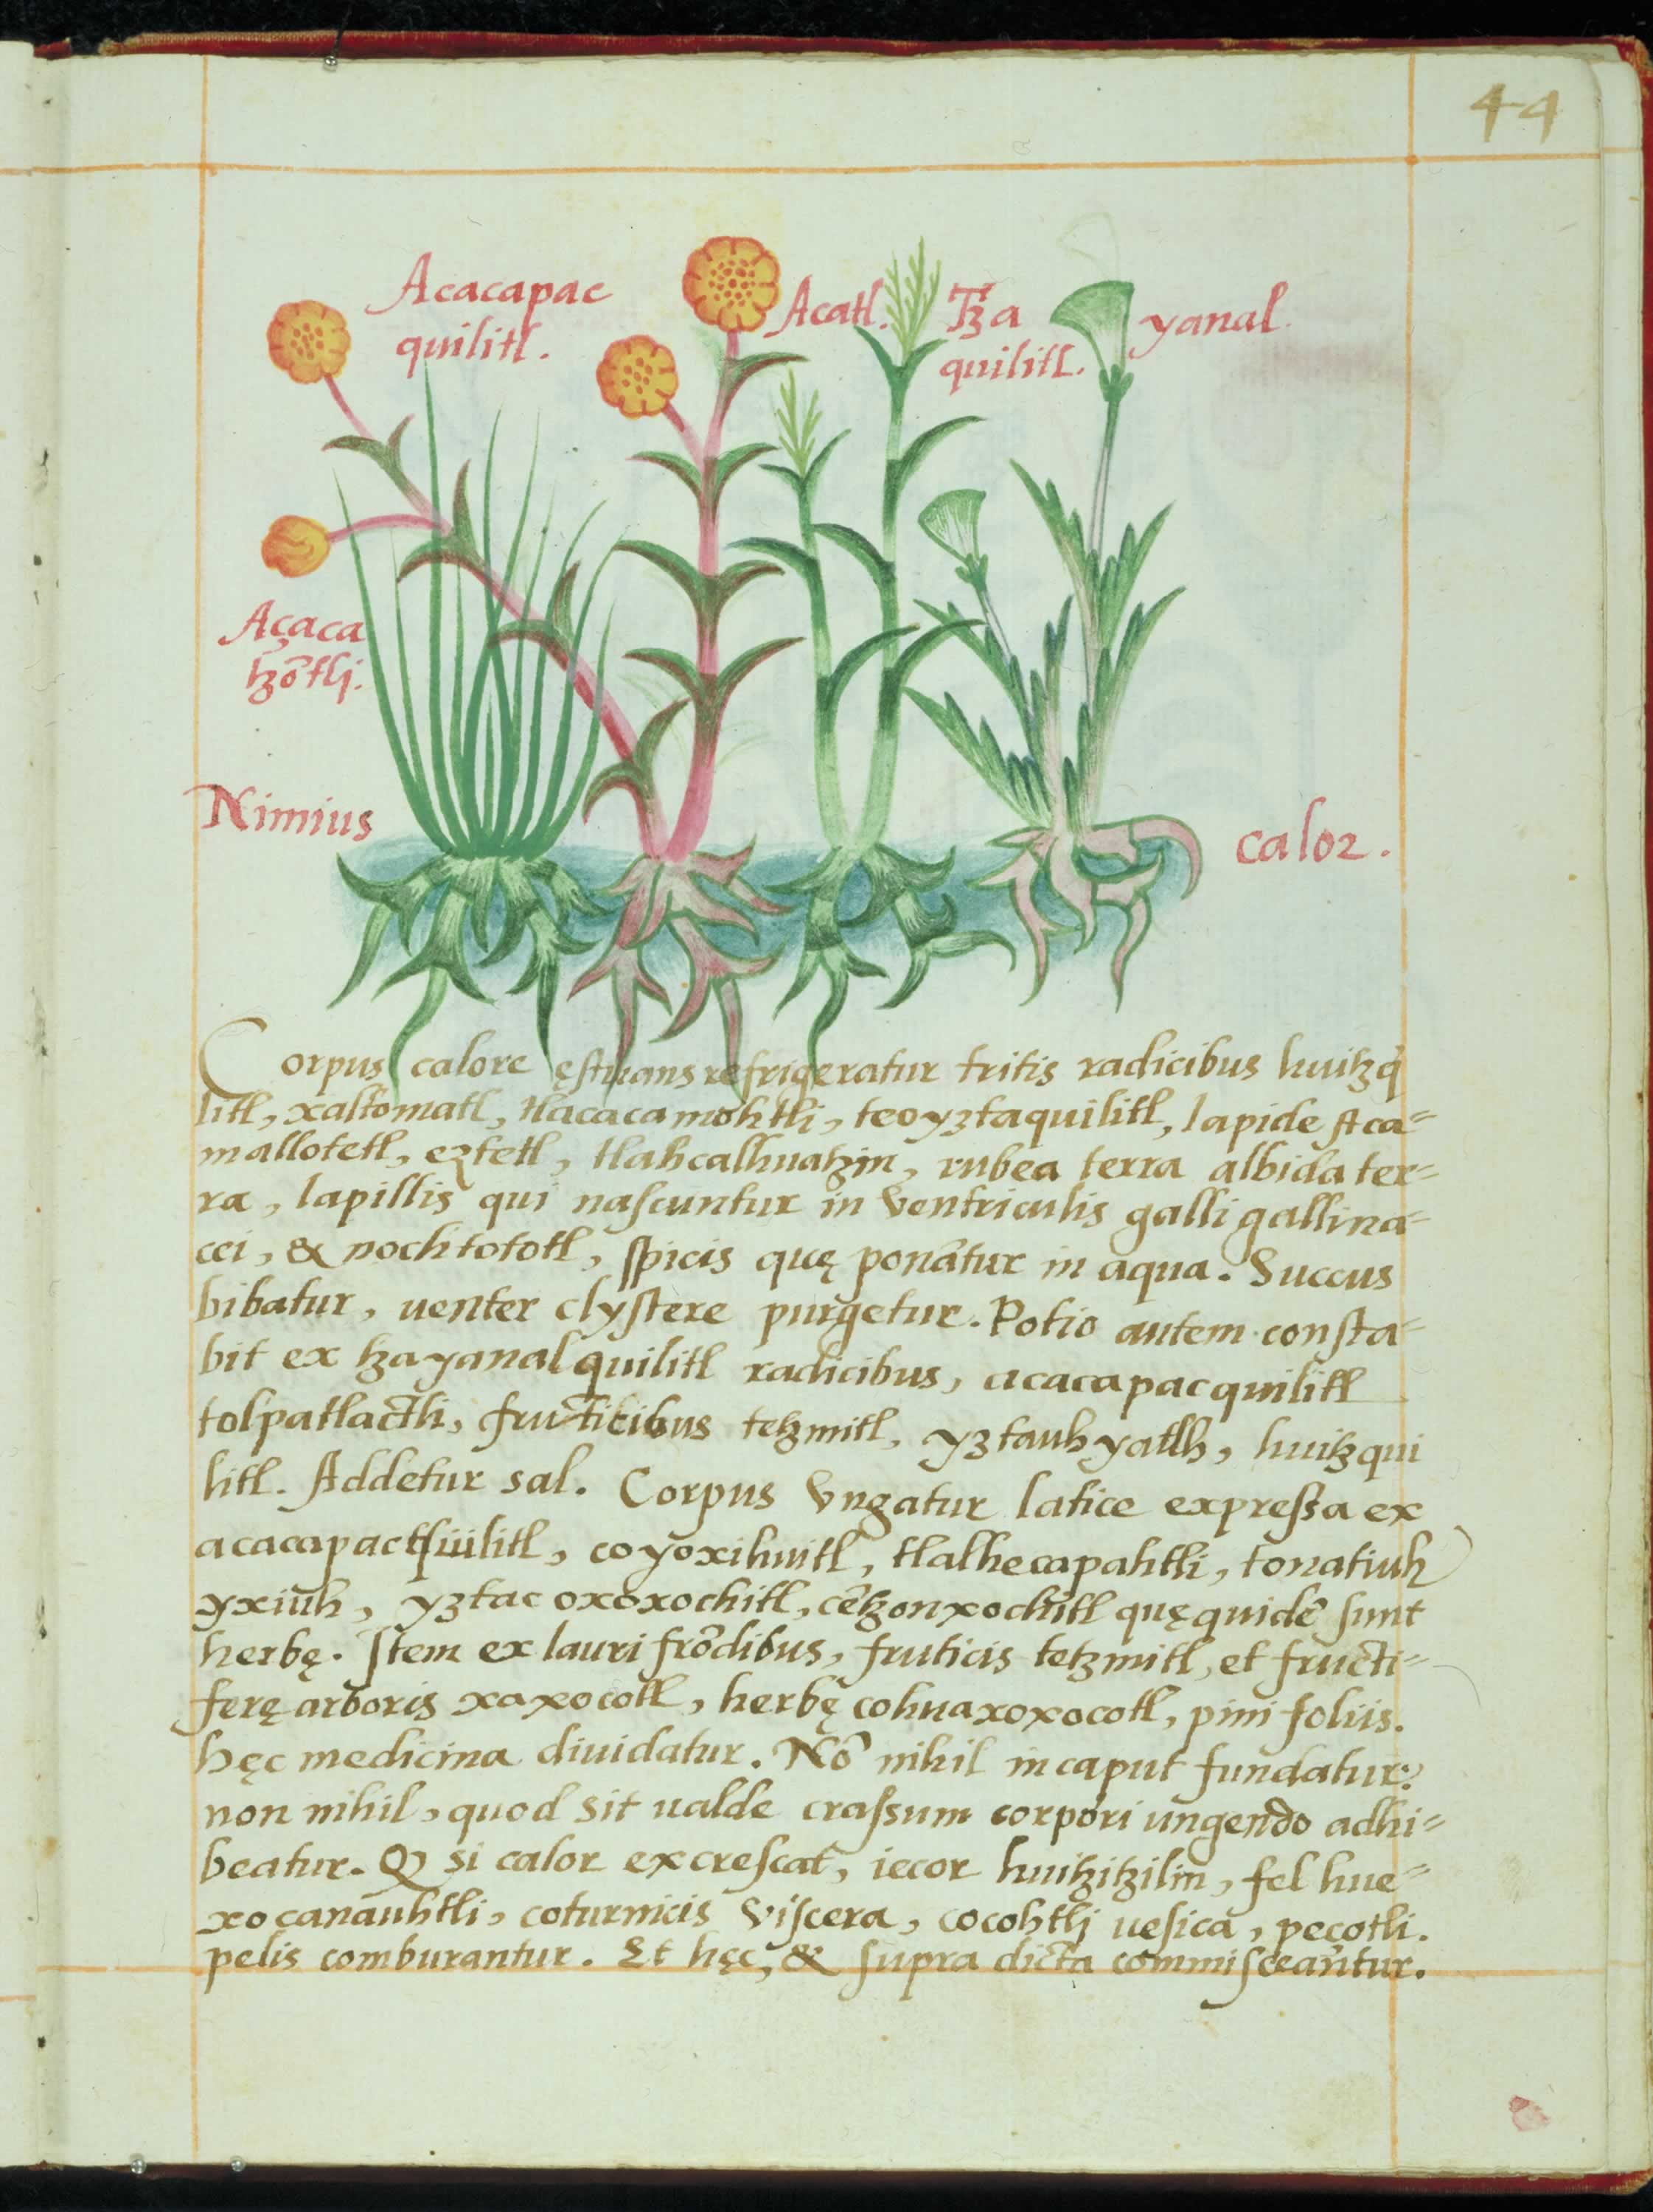 44
Acacapac
quilitl.
Acatl.
Tza yanal
quilitl.
Açaca
tzõtlj.
Nimius calor.
Corpus calore ęstuans refrigeratur tritis radicibus huitzq̃
litl, xaltomatl, tlacacamohtli, teoyztaquilitl, lapide Aca=
mallotetl, eztetl, tlahcalhuatzin, rubea terra albida ter=
ra, lapillis qui naſcuntur in ventriculis galli gallina=
cei, & nochtototl, ſpicis quę ponãtur in aqua. Succus
bibatur, uenter clyſtere purgetur. Potio autem conſta=
bit ex tzayanalquilitl radicibus, acacapacquilitl
tolpatlactli, fruticibus tetzmitl, yztauhyatlh, huitzqui
litl. Addetur sal. Corpus vngatur latice expreſsa ex
acacapacquilitl, coyoxihuitl, tlalhecapahtli, tonatiuh
yxiuh, yztac oxoxochitl, cẽtzonxochitl quę quidẽ ſunt
herbę. Item ex lauri frõdibus, fruticis tetzmitl, et fructi=
ferę arboris xaxocotl, herbę cohuaxoxocotl, pini foliis.
hęc medicina diuidatur. Nõ nihil in caput fundatur:
non nihil, quod sit ualde craſsum corpori ungendo adhi=
beatur. Q si calor excreſcat, iecor huitzitzilin, fel hue=
xocanauhtli, coturnicis viſcera, cocohtlj ueſica, pecotli.
pelis comburantur. Et hęc, & ſupra dicta commiſceantur.